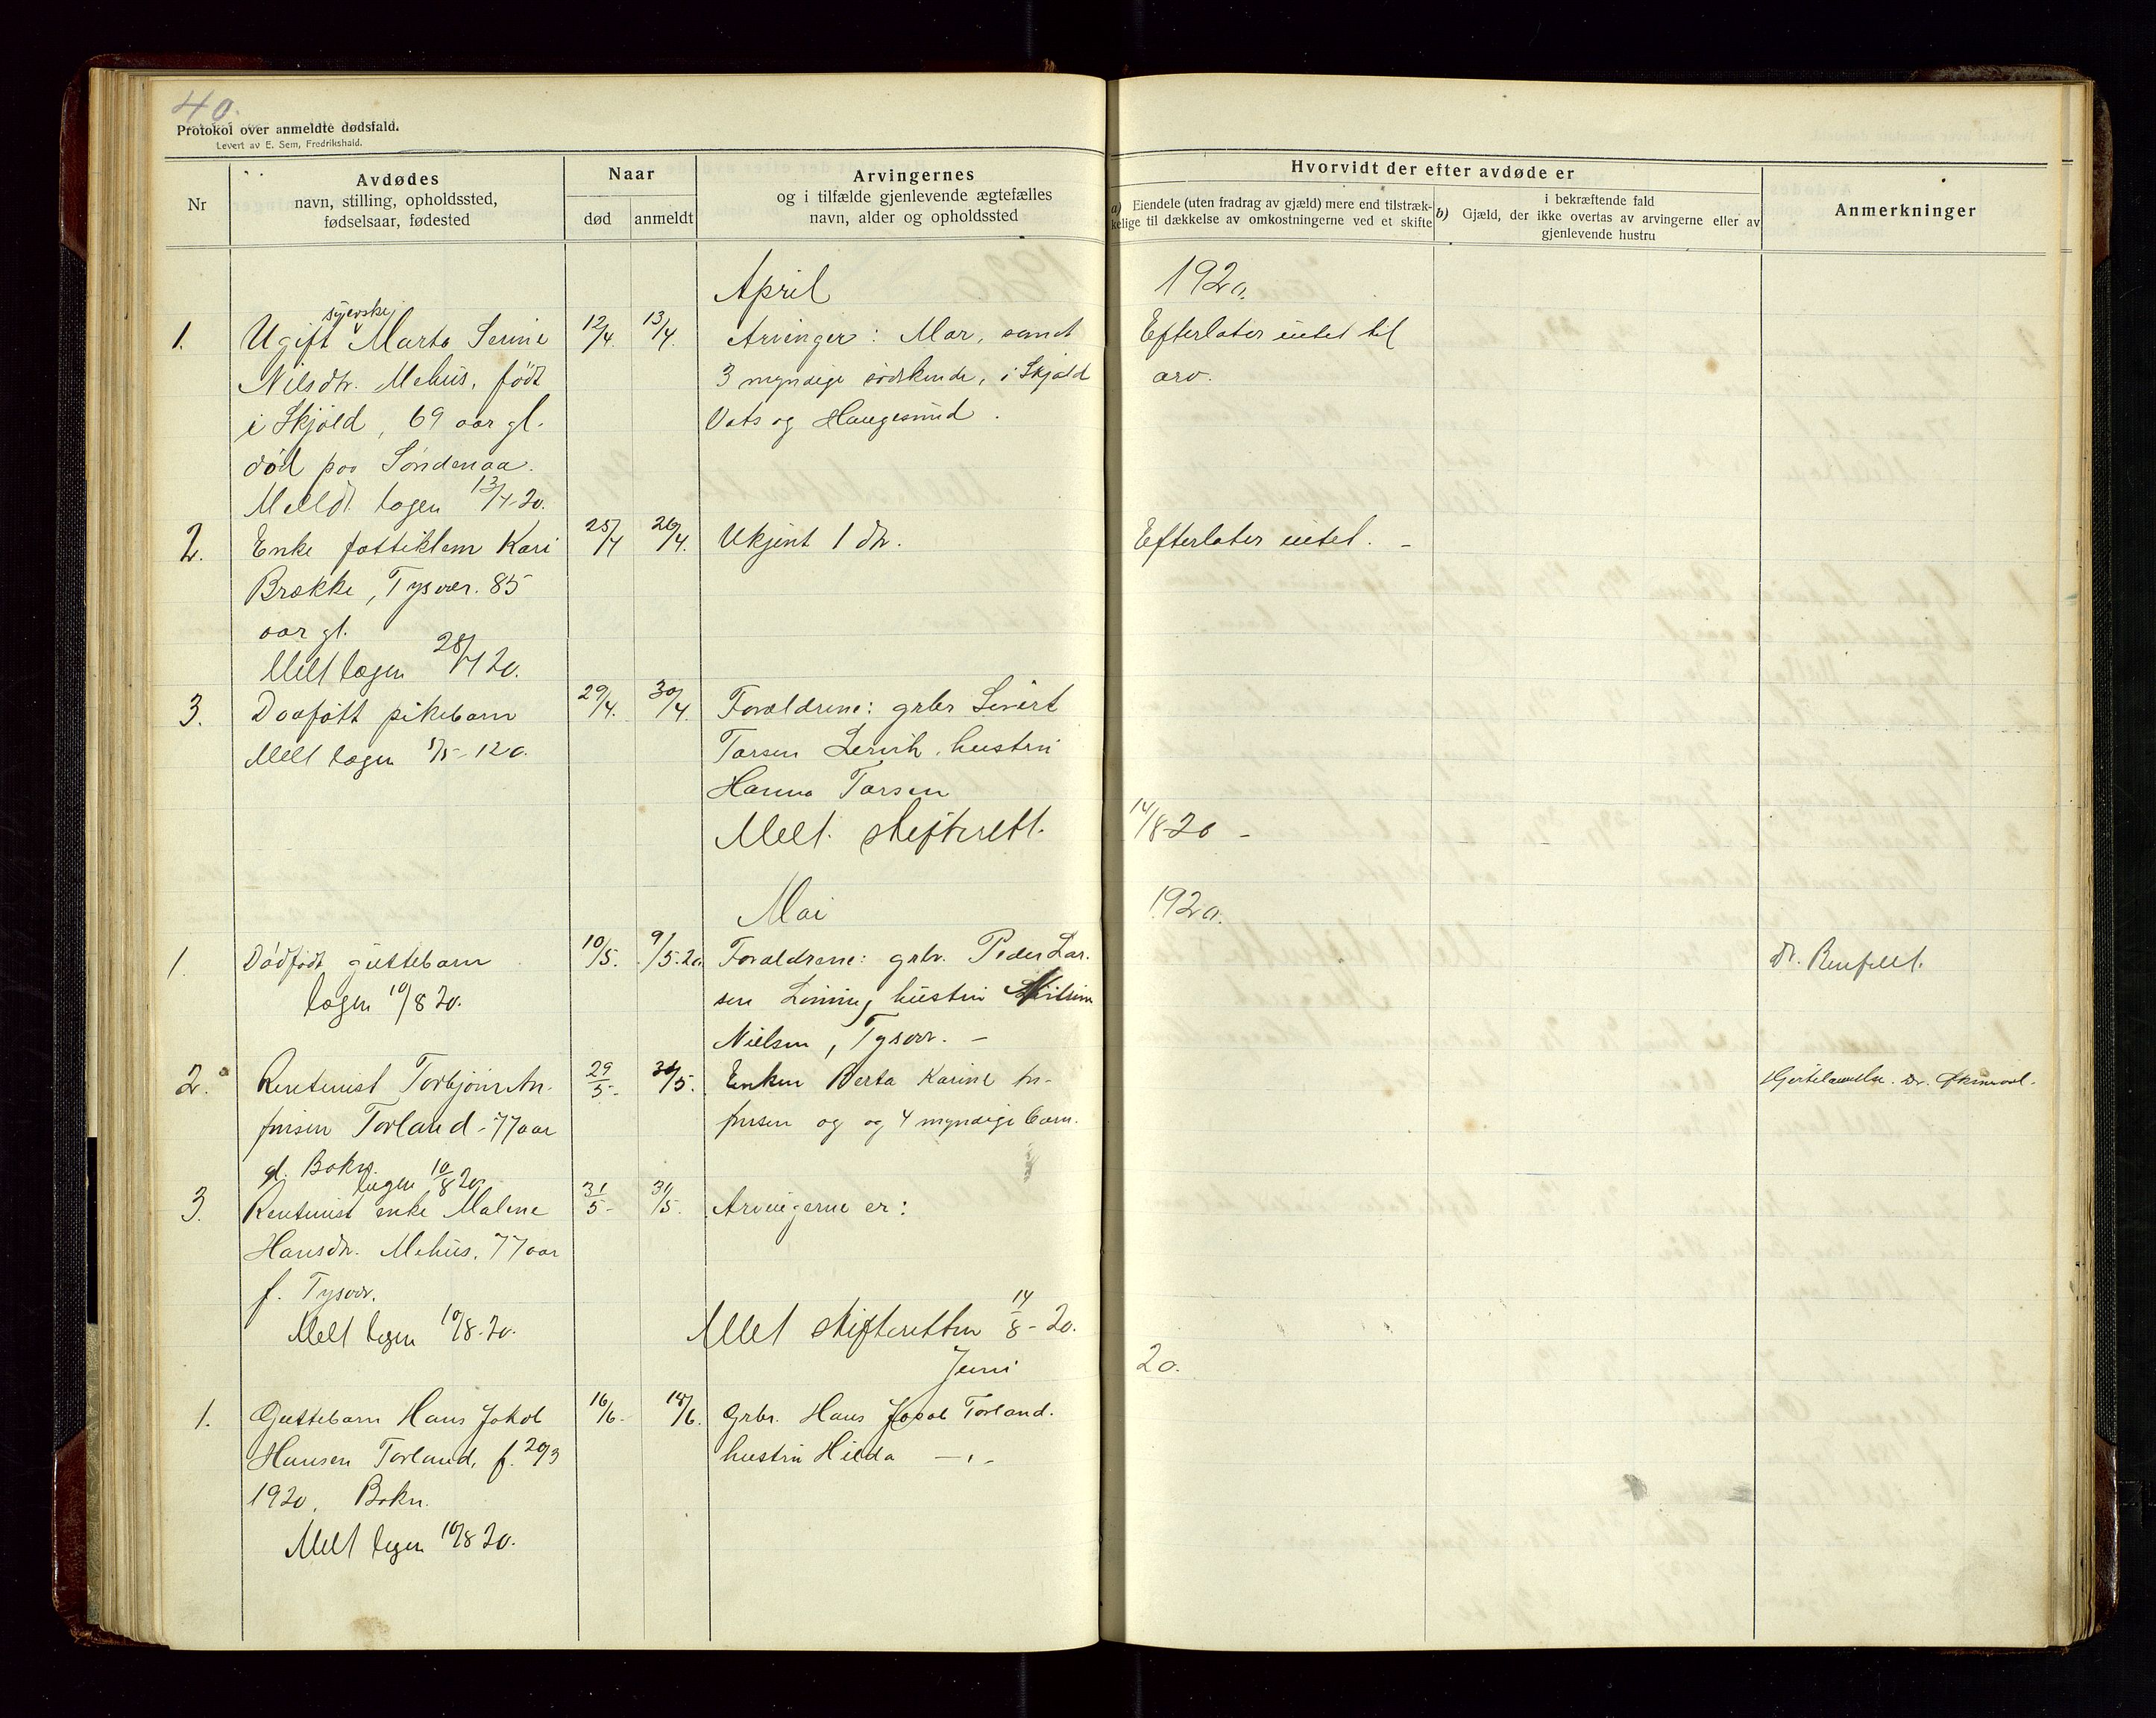 40.
Protokol over anmeldte dødsfald.
Levert av E. Sem, Fredrikshald.
Nr
Avdødes
navn, stilling, opholdssted,
fødselsaar, fødested
Naar
død
anmeldt
Arvingernes
og i tilfælde gjenlevende ægtefælles
navn, alder og opholdssted
Hvorvidt der efter avdøde er
a) Eiendele (uten fradrag av gjæld) mere end tilstræk-
kelige til dækkelse av omkostningerne ved et skifte
b)
i bekræftende fald
Gjæld, der ikke overtas av arvingerne eller av
gjenlevende hustru
Anmerkninger
April 1920.
1.
syerske
Ugift Marta Serine
Nilsdtr. Mehus, født
i Skjold, 69 aar gl.
død paa Søndenaa.
Melldt. lagen 13/4-20.
12/4.
13/4.
Arvinger: Mor, samt
3 myndige sødskende, i Skjold
Vats og Haugesund.
Efterlater intet til
arv.
2.
Enke fattiklem Kari
Brække, Tysvær. 85
aar gl.
Melt lagen 28/4 20.
25/4
26/4.
Ukjent 1 dtr.
Efterlater intet. -
3.
Daafått pikebarn
Melt lagen 1/5-120.
29/4.
30/4.
Forældrene: grbr Sivert
Tarsen Lervik, hustru
Hanna Tarsen
Melt. skifterett.
14/8-20 -
Mai 1920.
1.
Dødfødt guttebarn
lagen 10/8 20.
10/5.
9/5.20
Forældrene: grbr. Peder Lar.
sen Linning hustru
Nielsen, Tysvær. -
dr. Renfeldt.
2.
Rentenist Torbjørn An-
finsen Torland - 77 aar
gl. Bokn.
lagen 10/8 20.
29/5-
30/5.
Enken Berta Karine An-
finsen og og 4 myndige barn.
Hjertelammelse. Dr.
3.
Rentenist enke Malene
Hansdtr. Mehus. 77 aar
f. Tysvær.
Melt lagen 10/8-20.
31/5-
31/5.
Arvingerne er:
Melt skifteretten 14/8-20.
Juni 20.
1.
Guttebarn Hans Jakob
Hansen Torland, f. 20/3
1920. Bokn.
Melt lagen 10/8 20.
16/6-
18/6.
Grbr. Hans Jacob Torland.
hustru Hilda —"-